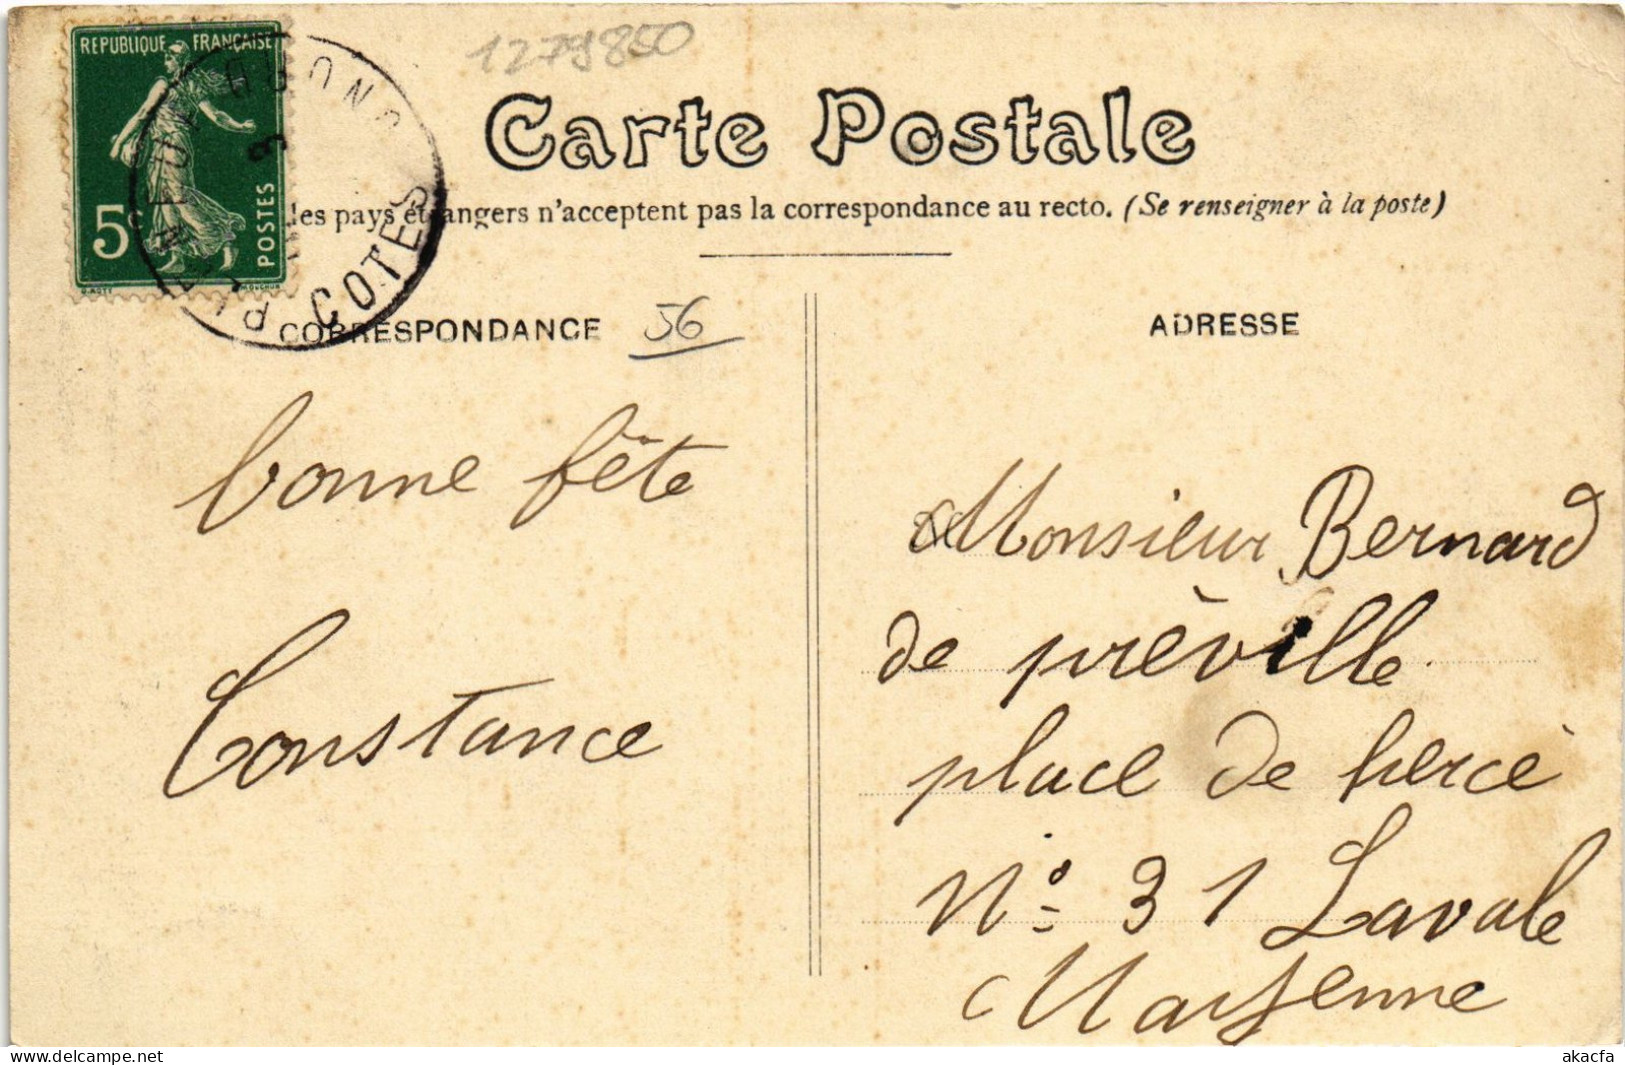 REPUBLIQUE FRANÇAISE
5c
POSTES
1279850
Carte Postale
les pays étrangers n'acceptent pas la correspondance au recto. (Se renseigner à la poste)
COTES
CORRESPONDANCE 56
ADRESSE
bonne fête
Constance
Monsieur Bernard
de prèville
place de hercè
N° 31 Lavale
Mayenne
www.delcampe.net
akacfa